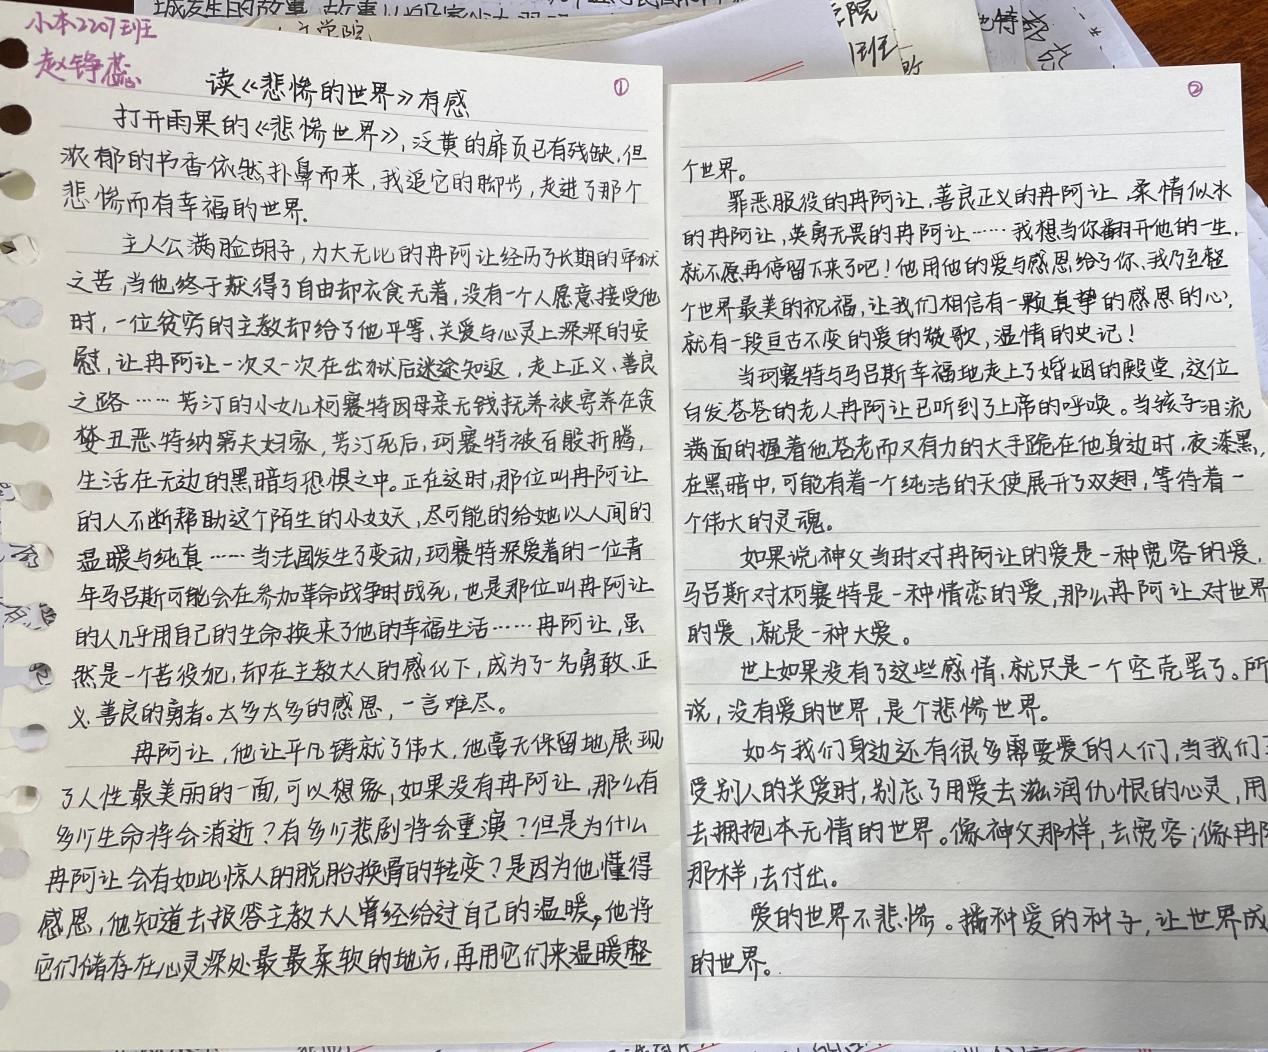 小本2207班
赵铮蕊
①
读《悲惨的世界》有感
打开雨果的《悲惨世界》，泛黄的扉页已有残缺，但
浓郁的书香依然扑鼻而来，我追它的脚步，走进了那个
悲惨而有幸福的世界。
主人公满脸胡子，力大无比的冉阿让经历了长期的牢狱
之苦，当他终于获得了自由却衣食无着，没有一个人愿意接受他
时，一位贫穷的主教却给了他平等、关爱与心灵上深深的安
慰，让冉阿让一次又一次在出狱后迷途知返，走上正义、善良
之路……芳汀的小女儿柯赛特因母亲无钱抚养被寄养在贪
婪丑恶特纳第夫妇家，芳汀死后，珂赛特被百般折腾，
生活在无边的黑暗与恐惧之中。正在这时，那位叫冉阿让
的人不断帮助这个陌生的小女孩，尽可能的给她以人间的
温暖与纯真……当法国发生了变动，珂赛特深爱着的一位青
年马吕斯可能会在参加革命战争时战死，也是那位叫冉阿让
的人几乎用自己的生命换来了他的幸福生活……冉阿让，虽
然是一个苦役犯，却在主教大人的感化下，成为了一名勇敢、正
义、善良的勇者。太多太多的感恩，一言难尽。
冉阿让，他让平凡铸就了伟大，他毫无保留地展现
了人性最美丽的一面，可以想象，如果没有冉阿让，那么有
多少生命将会消逝？有多少悲剧将会重演？但是为什么
冉阿让会有如此惊人的脱胎换骨的转变？是因为他懂得
感恩，他知道去报答主教大人曾经给过自己的温暖，他将
它们储存在心灵深处最最柔软的地方，再用它们来温暖整
②
个世界。
罪恶服役的冉阿让，善良正义的冉阿让，柔情似水
的冉阿让，英勇无畏的冉阿让……我想当你翻开他的一生，
就不愿再停留下来了吧！他用他的爱与感恩给了你、我乃至整
个世界最美的祝福，让我们相信有一颗真挚的感恩的心，
就有一段亘古不变的爱的敬歌，温情的史记！
当珂赛特与马吕斯幸福地走上了婚姻的殿堂，这位
白发苍苍的老人冉阿让已听到了上帝的呼唤。当孩子泪流
满面的握着他苍老而又有力的大手跪在他身边时，夜漆黑，
在黑暗中，可能有着一个纯洁的天使展开了双翅，等待着一
个伟大的灵魂。
如果说神父当时对冉阿让的爱是一种宽容的爱，
马吕斯对柯赛特是一种情恋的爱，那么冉阿让对世界
的爱，就是一种大爱。
世上如果没有了这些感情，就只是一个空壳罢了。所
说，没有爱的世界，是个悲惨世界。
如今我们身边还有很多需要爱的人们，当我们
受别人的关爱时，别忘了用爱去滋润仇恨的心灵，用
去拥抱本无情的世界。像神父那样，去宽容；像冉阿
那样，去付出。
爱的世界不悲惨。播种爱的种子，让世界成
的世界。